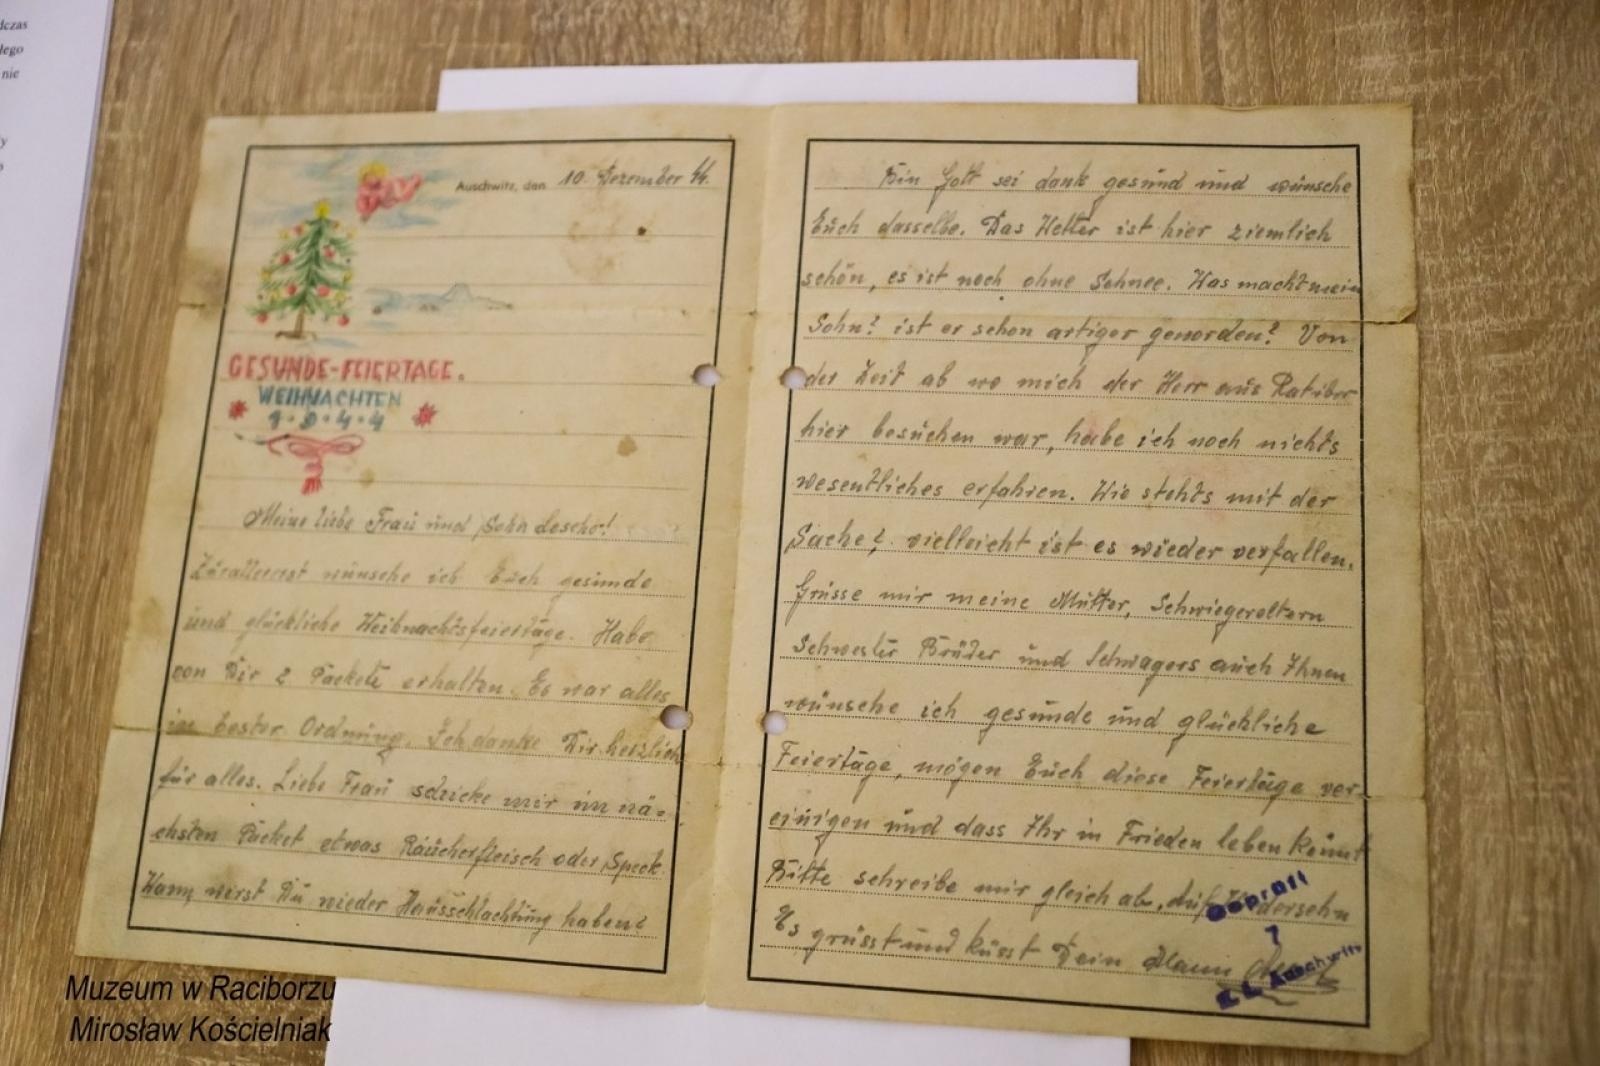 dczas
łego
nie
Auschwitz, den 10. Dezember 44.
GESUNDE-FEIERTAGE.
WEIHNACHTEN
1·9·4·4
Meine liebe Frau und Sohn Lescho!
Zurallererst wünsche ich Euch gesunde
und glückliche Weihnachtsfeiertage. Habe
von Dir 2 Packete erhalten. Es war alles
in bester Ordnung. Ich danke Dir herzlich
für alles. Liebe Frau schicke mir im nä-
chsten Packet etwas Räucherfleisch oder Speck.
Wann wirst Du wieder Hausschlachtung haben?
Bin Gott sei dank gesund und wünsche
Euch dasselbe. Das Wetter ist hier ziemlich
schön, es ist noch ohne Schnee. Was macht mein
Sohn? ist er schon artiger geworden? Von
der Zeit ab wo mich der Herr aus Ratibor
hier besuchen war, habe ich noch nichts
wesentliches erfahren. Wie stehts mit der
Sache? vielleicht ist es wieder verfallen.
Grüsse mir meine Mutter, Schwiegereltern
Schwester Brüder und Schwagers auch Ihnen
wünsche ich gesunde und glückliche
Feiertage, mögen Euch diese Feiertage ver-
einigen und dass Ihr in Frieden leben könnt
Bitte schreibe mir gleich ab, auf Wiedersehn
Es grüsst und küsst Dein Mann
Geprüft
7
K. L. Auschwitz
Muzeum w Raciborzu
Mirosław Kościelniak